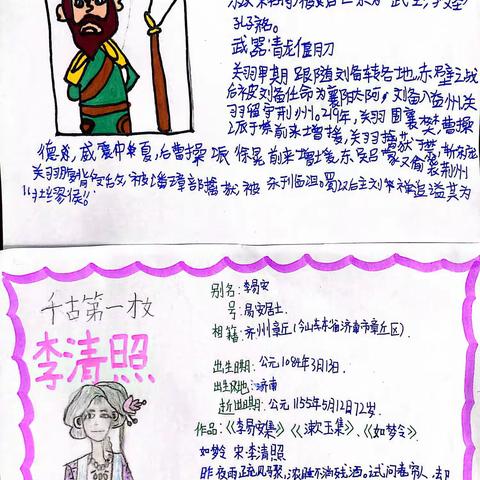 武器:青龙偃月刀
关羽早期跟随刘备转各地,赤壁之战
后被刘备任命为襄阳太守,刘备入益州,关
羽留守荆州。219年,关羽围襄樊,曹操
派于禁前来增援,关羽擒获于禁,斩庞
德,威震华夏,后曹操派徐晃前来增援,东吴吕蒙又偷袭荆州
关羽腹背受敌,被潘璋部擒获被杀于临沮。蜀汉后主刘禅追谥其为
"壮缪侯"
千古第一才女
李清照
别名:李易安
号:易安居士.
祖籍:齐州章丘(今山东省济南市章丘区).
出生日期:公元1084年3月13日.
出生地:济南
逝世日期:公元1155年5月12日72岁.
作品:《李易安集》《漱玉集》、《如梦令》.
如梦令 宋·李清照
昨夜雨疏风骤,浓睡不消残酒。试问卷帘人,却